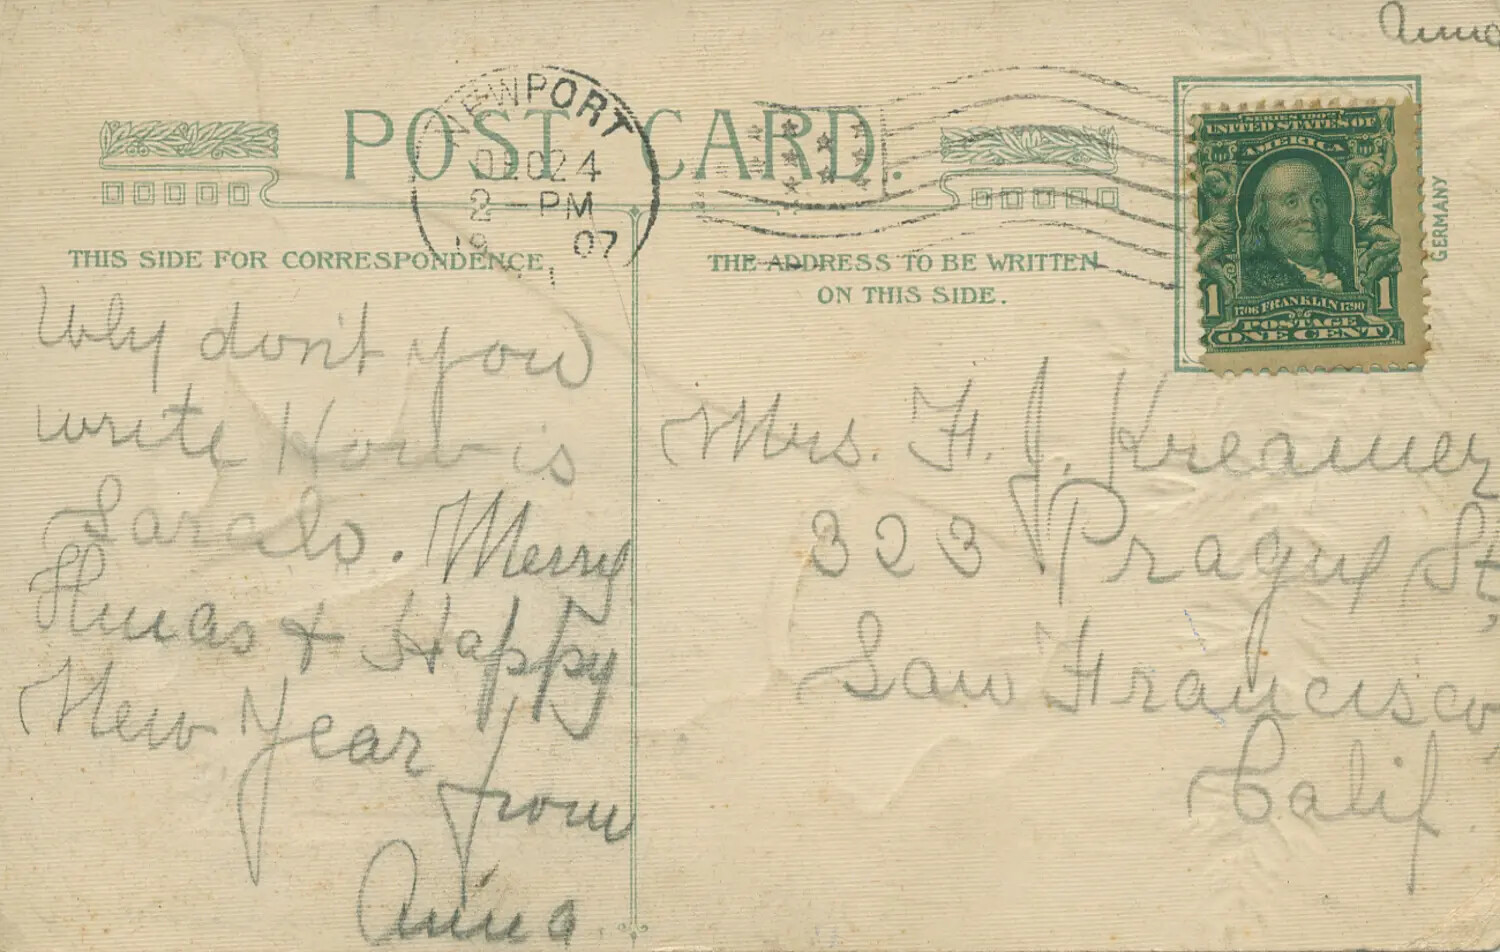 Anna
POST CARD.
NEWPORT
DEC 24
2 - PM
19 07
THIS SIDE FOR CORRESPONDENCE.
Why don't you
write How is
. Merry
Xmas + Happy
New Year
from
Anna
THE ADDRESS TO BE WRITTEN
ON THIS SIDE.
SERIES 1902
UNITED STATES OF
AMERICA
1 1
1706 FRANKLIN 1790
POSTAGE
ONE CENT
GERMANY
Mrs. F. J. Kreamer
323 Prague St,
San Francisco,
Calif.